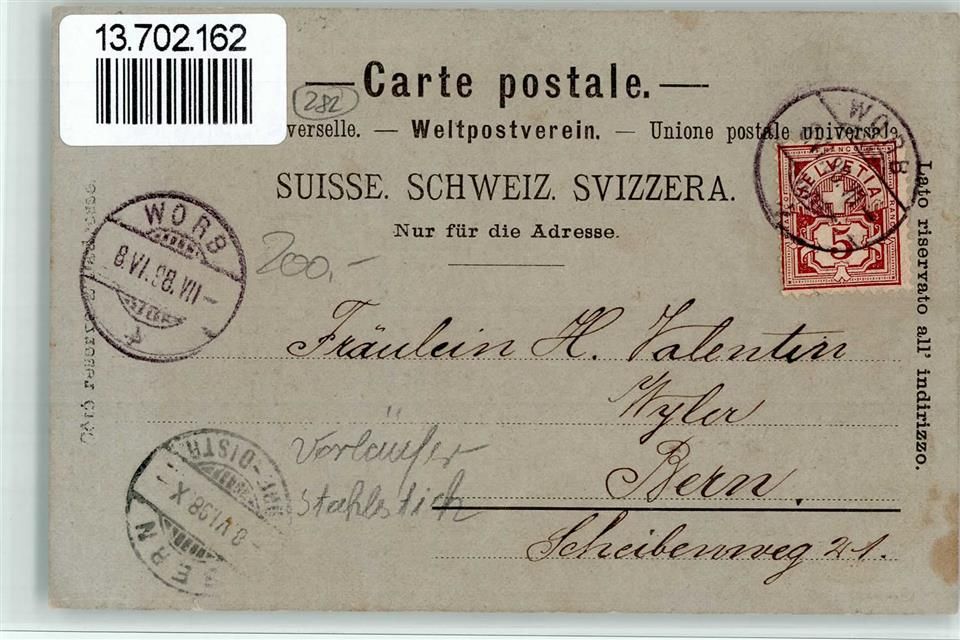 13.702.162
Carte postale.
282
verselle. — Weltpostverein. — Unione postale universale
SUISSE. SCHWEIZ. SVIZZERA.
Nur für die Adresse.
200,-
WORB
8.VI.98.VII-
WORB
HELVETIA
FRANCO
5
Lato riservato all' indirizzo.
Fräulein H. Valentin
Wyler
Bern.
Scheibenweg 21.
Vorläufer
Stahlstich
BERN
8.VI.98.X-